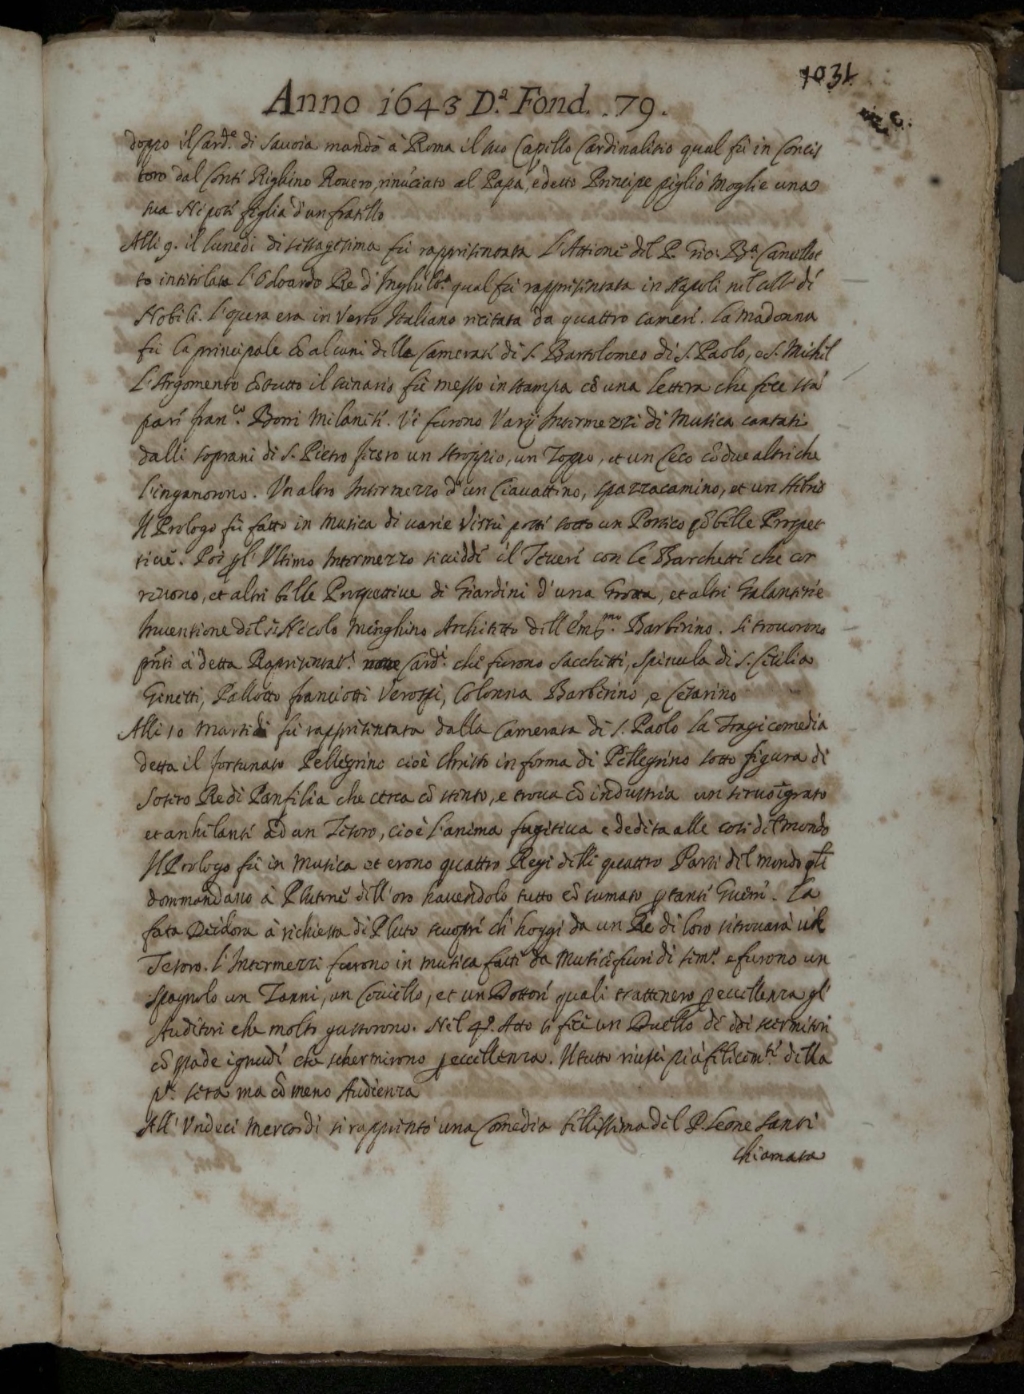 1031
Anno 1643 D.ª Fond. 79.
doppo il Card.e di Savoia mandò à Roma il suo Capello Cardinalitio qual fù in Concis
toro dal Conti Righino Rovero, rinuciato al Papa, e detto Principe piglio Moglie una
sua Nepote figlia d'un fratello
Alli 9. il lunedi di sessagesima fù rappresentata l'Attione del P. Gio: B.a Cancellot
to intitolata l'Odoardo Re d'Inghil.a qual fù rappresentata in Napoli nel Coll.o de
Nobili. l'opera era in Verso Italiano recitata da quattro camere. la Madonna
fù la principale et alcuni delle Camerate di S. Bartolomeo di S. Paolo, e S. Michel
L'Argomento et tutto il scenario fù messo in stampa cõ una lettera che fece
Fran.co Borri Milanese. Vi furono Varij Intermezzi di Musica cantati
dalli soprani di S. Pietro fecero un stroppio, un Zoppo, et un Ceco cõ due altri che
l'inganorono. Un altro Intermezzo d'un Ciavattino, spazzacamino, et un
Il Prologo fù fatto in musica di varie Virtù poste sotto un Portico cõ belle Prospet
tive. Poi l'Ultimo Intermezzo si vidde il Tevere con le Barchette che cor
revono, et altri belle Prospettive di Giardini d'una Grotta, et altri Galanterie
Inventione del S. Nicolo Menghino Architetto dell'Em.mo Barberino. si trovorono
pñti à detta Rapresentat.e nove Card.i che furono Sacchetti, Spinula di S. Cecilia
Ginetti, Pallotto franciotti Verospi, Colonna Barberino, e Cesarino
Alli 10 Martedi fù rappresentata dalla Camerata di S. Paolo la Tragicomedia
detta il fortunato Pellegrino cioè Christo in forma di Pellegrino sotto figura di
Sotero Re di Panfilia che cerca cõ stento, e trova cõ industria un servo ĩgrato
et anhelante ad un Tesoro, cioè l'anima fugitiva e dedita alle cose del mondo
Il Prologo fù in Musica et erono quattro Regi delli quattro Parti del mondo
dommandano à Plutone dell'oro havendolo tutto cõsumato p tante Guerre. La
fata Deidora à richiesta di Pluto scuopre ch'hoggi da un Re di loro si trovarà
Tesoro. l'Intermezzi furono in musica fatti da Musici fuori di sem.o e furono un
spagnolo un Zanni, un Coviello, et un Dottore quali trattenero p eccellenza gl'
Auditori che molto gustorono. Nel 4º. Atto si fece un Duello di doi scrimitori
cõ spade ignude che schermirono p eccellenza. Il tutto riuscì più felicem.te della
p.a sera ma cõ meno Audienza
All'Undeci Mercordi si rappresentò una Comedia bellissima del P. Leone Santi
chiamata